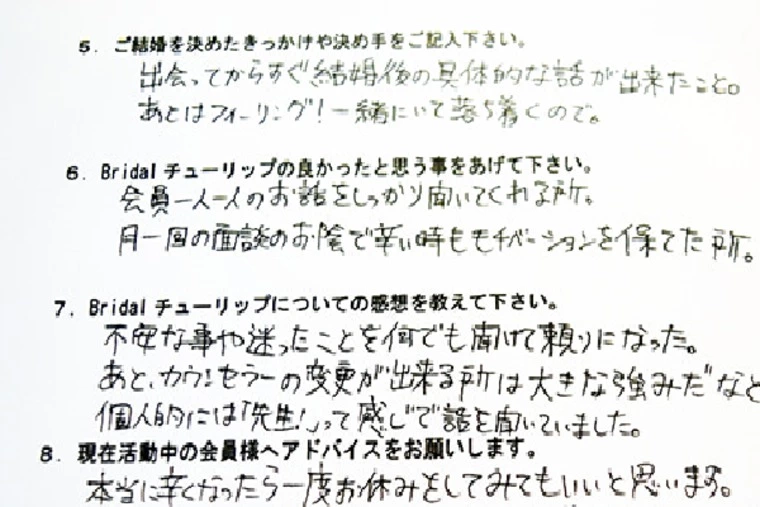 5. ご結婚を決めたきっかけや決め手をご記入下さい。
出会ってからすぐ結婚後の具体的な話が出来たこと。
あとはフィーリング!一緒にいて落ち着くので。
6. Bridal チューリップの良かったと思う事をあげて下さい。
会員一人一人のお話をしっかり聞いてくれる所。
月一回の面談のお陰で辛い時ももチベーションを保てた所。
7. Bridal チューリップについての感想を教えて下さい。
不安な事や迷ったことを何でも聞けて頼りになった。
あと、カウンセラーの変更が出来る所は大きな強みだなと
個人的には「先生!」って感じで話を聞いていました。
8. 現在活動中の会員様へアドバイスをお願いします。
本当に辛くなったら一度お休みをしてみてもいいと思います。